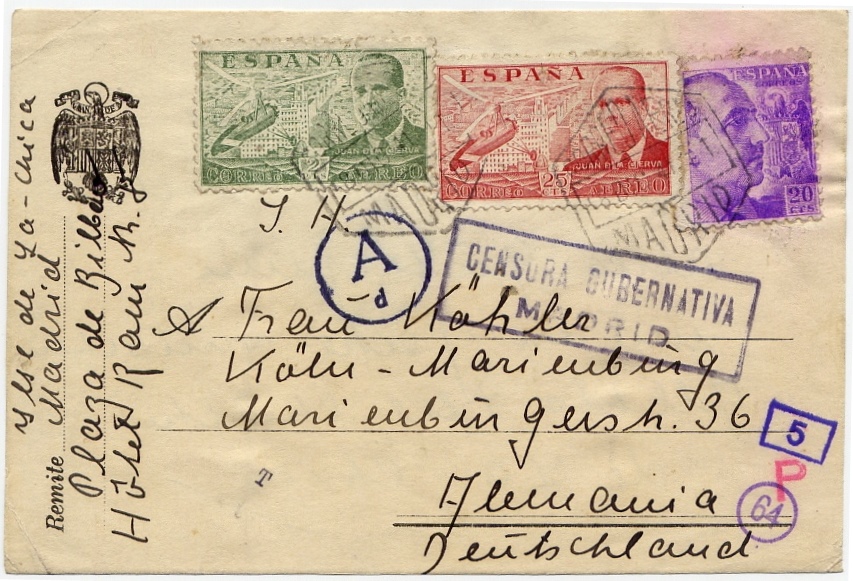 ESPAÑA
2
JUAN DE LA CIERVA
CORREO AEREO
ESPAÑA
JUAN DE LA CIERVA
CORREO 25 CTS AEREO
ESPAÑA
CORREOS
20
CTS
MADRID
MADRID
A
d
CENSURA GUBERNATIVA
MADRID
A Frau Köhler
Köln - Marienburg
Marienburgerstr. 36
Alemania
Deutschland
5
P
64
T
Remite Ylse de la-Chica
Madrid
Plaza de Bilbao
Hôtel